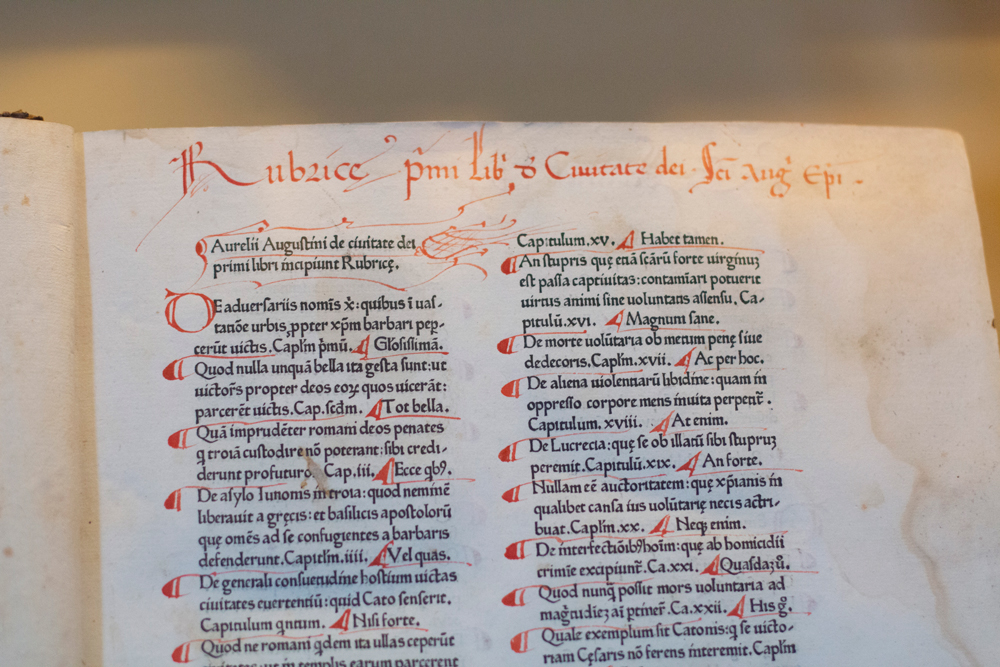 Rubrice p̄mi Lib' d̄ Ciuitate dei. Sc̄i Aug᷑ Ep̄i.
Aurelii Augustini de ciuitate dei
primi libri incipiunt Rubricę.
DE aduersariis nomis x̄: quibus ī uas-
tatōe urbis, ꝓpter xp̄m barbari pep-
cerūt uictis. Caplm p̄mū. Glosissimā.
Quod nulla unquā bella ita gesta sunt: ut
uictor̄s propter deos eoꝝ quos uicerāt:
parcerēt uictis. Cap. scdm. Tot bella.
Quā imprudēter romani deos penates
q troiā custodire nō poterant: sibi credi-
derunt profuturo. Cap. iii. Ecce qbꝰ.
De asylo Iunonis in troia: quod neminē
liberauit a gręcis: et basilicis apostolorū
quę omēs ad se confugientes a barbaris
defenderunt. Capitlm. iiii. Vel quas.
De generali consuetudine hostium uictas
ciuitates euertentiū: quid Cato senserit.
Capitulum qntum. Nisi forte.
Quod ne romani qdem ita ullas ceperūt
ciuitates: ut in templis earum parcerent
Capitulum. xv. Habet tamen.
An stupris quę etiā sc̄āꝝ forte uirginuꝫ
est passa captiuitas: contamīari potuerit
uirtus animi sine uoluntatis assensu. Ca-
pitulū. xvi. Magnum sane.
De morte uolūtaria ob metum penę siue
dedecoris. Caplm. xvii. Ac per hoc.
De aliena uiolentiarū libidine: quam in
oppresso corpore mens inuita perpetit̄.
Capitulum. xviii. At enim.
De Lucrecia: quę se ob illatū sibi stupruꝫ
peremit. Capitulū. xix. An forte.
Nullam eē auctoritatem: quę xp̄ianis in
qualibet causa ius uolūtarię necis actri-
buat. Caplm. xx. Neqꝫ enim.
De interfectiōibꝰ hoīm: quę ab homicidii
crimīe excipiunt̄. Ca. xxi. Quasdaꝫ ū.
Quod nunq̄ possit mors uoluntaria ad
mag̊tudiēꝫ aī ptiner̄. Ca. xxii. His g̊.
Quale exemplum sit Catonis: q se uicto-
riam Cęsaris nō ferens interemit. Caplm